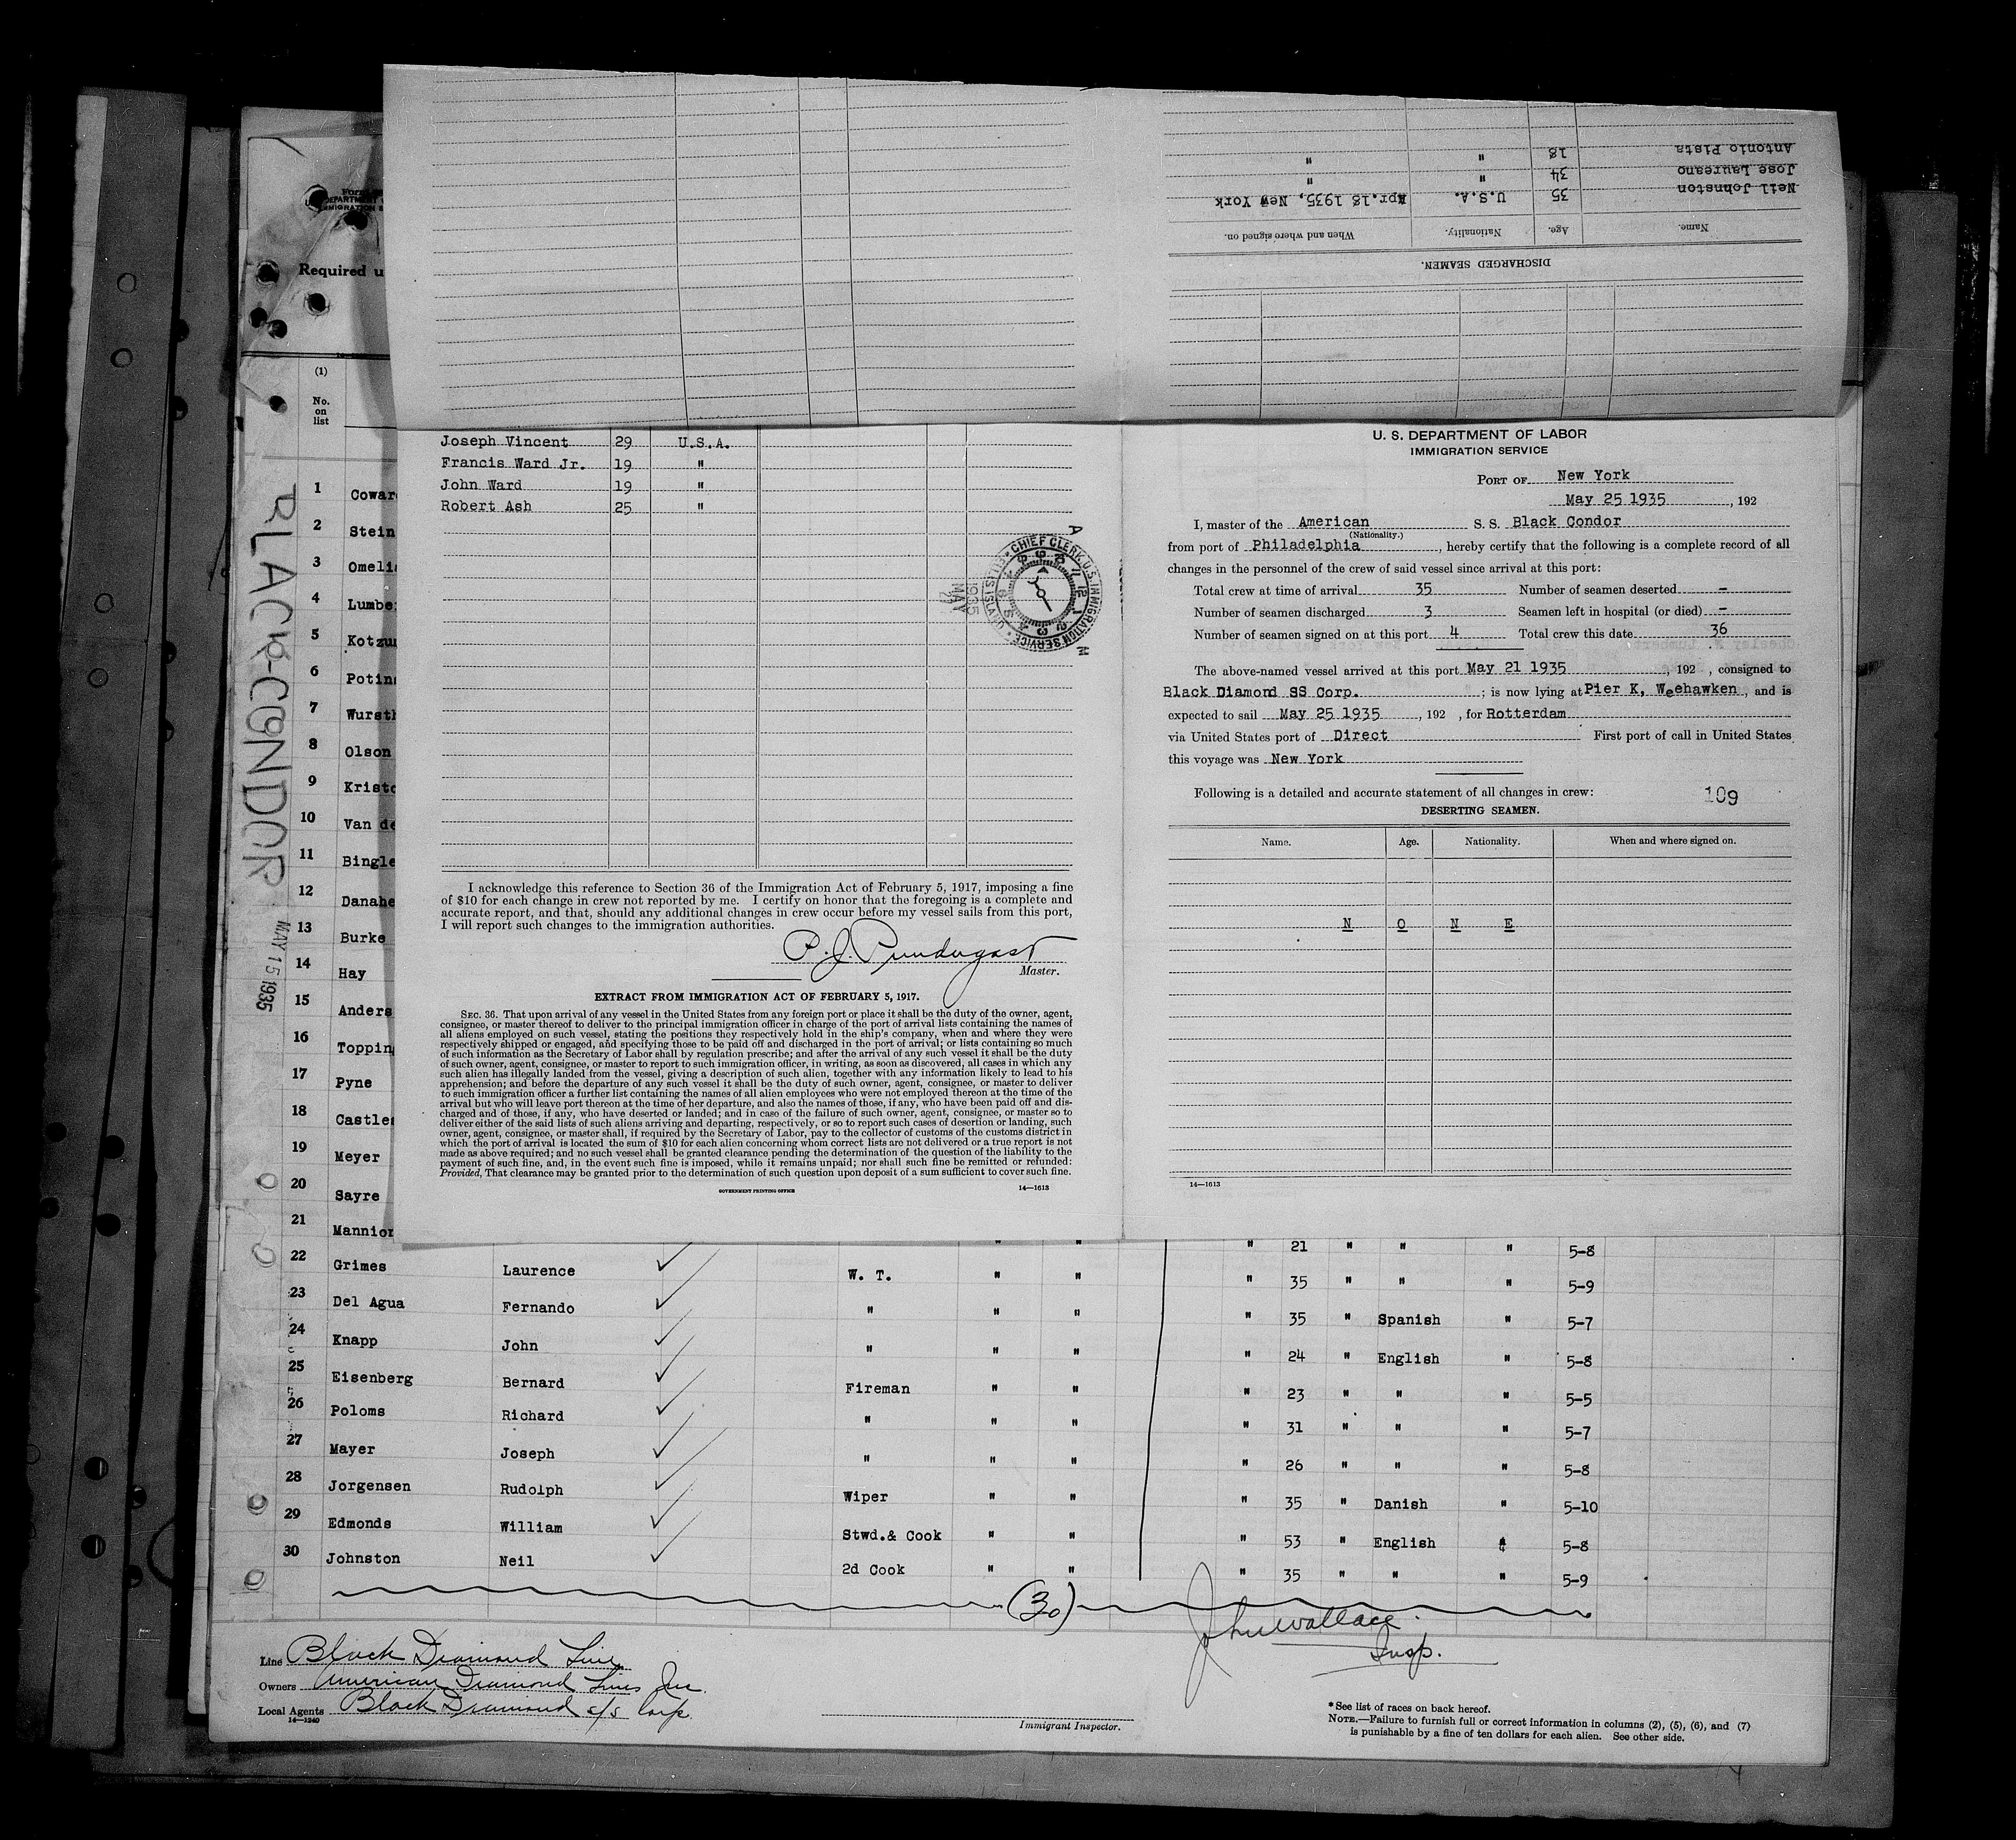 Form
U. S. DEPARTMENT
IMMIGRATION S
Required u
(1)
No.
on
list
BLACK-CONDOR
MAY 15 1935
1 Cowar
2 Stein
3 Omeli
4 Lumbe
5 Kotzu
6 Potin
7 Wurst
8 Olson
9 Kristo
10 Van de
11 Bingle
12 Danahe
13 Burke
14 Hay
15 Anders
16 Topping
17 Pyne
18 Castle
19 Meyer
20 Sayre
21 Mannion
Antonio Pista 18 " "
Jose Laureano 34 " "
Neil Johnston 35 U.S.A. Apr.18 1935, New York
Name. Age. Nationality. When and where signed on.
DISCHARGED SEAMEN.
Joseph Vincent 29 U.S.A.
Francis Ward Jr. 19 "
John Ward 19 "
Robert Ash 25 "
CHIEF CLERK, U.S. IMMIGRATION SERVICE • ELLIS ISLAND
MAY
1935
I acknowledge this reference to Section 36 of the Immigration Act of February 5, 1917, imposing a fine
of $10 for each change in crew not reported by me. I certify on honor that the foregoing is a complete and
accurate report, and that, should any additional changes in crew occur before my vessel sails from this port,
I will report such changes to the immigration authorities.
P. J.
Master.
EXTRACT FROM IMMIGRATION ACT OF FEBRUARY 5, 1917.
SEC. 36. That upon arrival of any vessel in the United States from any foreign port or place it shall be the duty of the owner, agent,
consignee, or master thereof to deliver to the principal immigration officer in charge of the port of arrival lists containing the names of
all aliens employed on such vessel, stating the positions they respectively hold in the ship's company, when and where they were
respectively shipped or engaged, and specifying those to be paid off and discharged in the port of arrival; or lists containing so much
of such information as the Secretary of Labor shall by regulation prescribe; and after the arrival of any such vessel it shall be the duty
of such owner, agent, consignee, or master to report to such immigration officer, in writing, as soon as discovered, all cases in which any
such alien has illegally landed from the vessel, giving a description of such alien, together with any information likely to lead to his
apprehension; and before the departure of any such vessel it shall be the duty of such owner, agent, consignee, or master to deliver
to such immigration officer a further list containing the names of all alien employees who were not employed thereon at the time of the
arrival but who will leave port thereon at the time of her departure, and also the names of those, if any, who have been paid off and dis-
charged and of those, if any, who have deserted or landed; and in case of the failure of such owner, agent, consignee, or master so to
deliver either of the said lists of such aliens arriving and departing, respectively, or so to report such cases of desertion or landing, such
owner, agent, consignee, or master shall, if required by the Secretary of Labor, pay to the collector of customs of the customs district in
which the port of arrival is located the sum of $10 for each alien concerning whom correct lists are not delivered or a true report is not
made as above required; and no such vessel shall be granted clearance pending the determination of the question of the liability to the
payment of such fine, and, in the event such fine is imposed, while it remains unpaid; nor shall such fine be remitted or refunded:
Provided, That clearance may be granted prior to the determination of such question upon deposit of a sum sufficient to cover such fine.
GOVERNMENT PRINTING OFFICE 14—1613
U. S. DEPARTMENT OF LABOR
IMMIGRATION SERVICE
PORT OF New York
May 25 1935, 192
I, master of the American S. S. Black Condor
(Nationality.)
from port of Philadelphia, hereby certify that the following is a complete record of all
changes in the personnel of the crew of said vessel since arrival at this port:
Total crew at time of arrival 35 Number of seamen deserted -
Number of seamen discharged 3 Seamen left in hospital (or died) -
Number of seamen signed on at this port 4 Total crew this date 36
The above-named vessel arrived at this port May 21 1935, 192 , consigned to
Black Diamond SS Corp. ; is now lying at Pier K, Weehawken, and is
expected to sail May 25 1935, 192 , for Rotterdam
via United States port of Direct First port of call in United States
this voyage was New York
Following is a detailed and accurate statement of all changes in crew: 109
DESERTING SEAMEN.
Name. Age. Nationality. When and where signed on.
N O N E
14—1613
" " " 21 " " " 5-8
22 Grimes Laurence W. T. " " " 35 " " " 5-9
23 Del Agua Fernando " " " " 35 " Spanish " 5-7
24 Knapp John " " " " 24 " English " 5-8
25 Eisenberg Bernard Fireman " " " 23 " " " 5-5
26 Poloms Richard " " " " 31 " " " 5-7
27 Mayer Joseph " " " " 26 " " " 5-8
28 Jorgensen Rudolph Wiper " " " 35 " Danish " 5-10
29 Edmonds William Stwd.& Cook " " " 53 " English " 5-8
30 Johnston Neil 2d Cook " " " 35 " " " 5-9
(30)
John Wallace
Insp.
Line Black Diamond Line
Owners American Diamond Lines Inc.
Local Agents Black Diamond s/s Corp.
14—1240
Immigrant Inspector.
* See list of races on back hereof.
NOTE.—Failure to furnish full or correct information in columns (2), (5), (6), and (7)
is punishable by a fine of ten dollars for each alien. See other side.